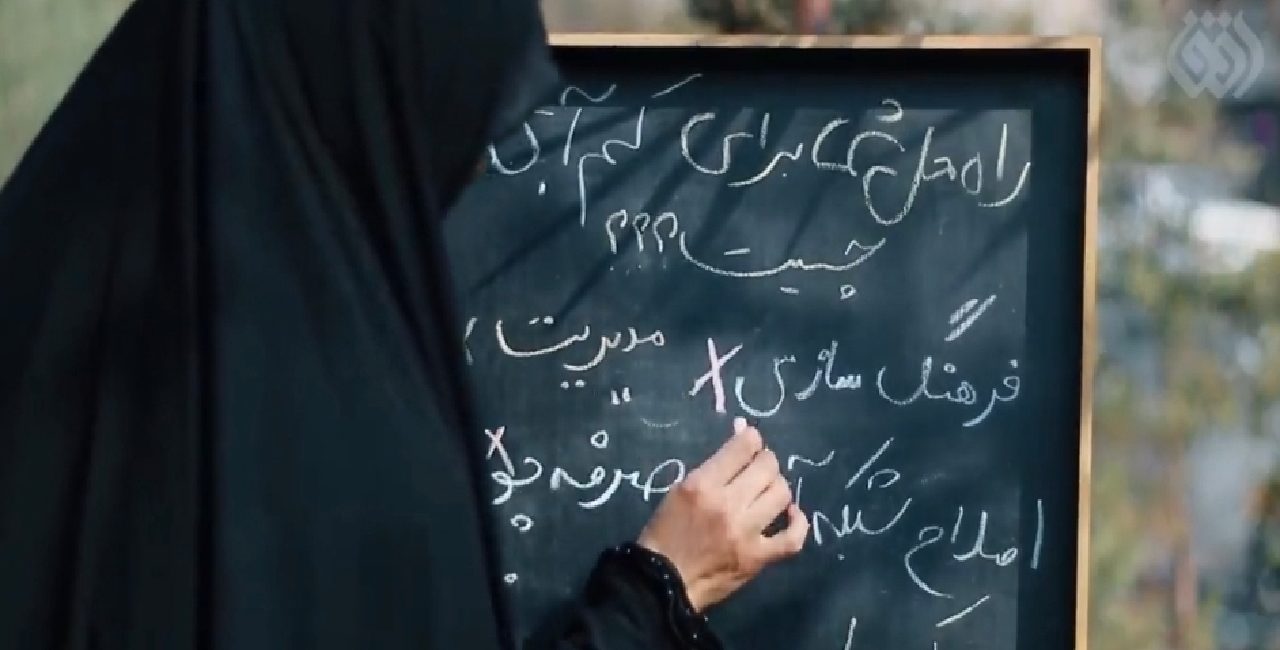 راه حل شما برای کم آبی
چیست ؟؟؟
فرهنگ سازی X مدیریت
اصلاح شبکه صرفه جو X